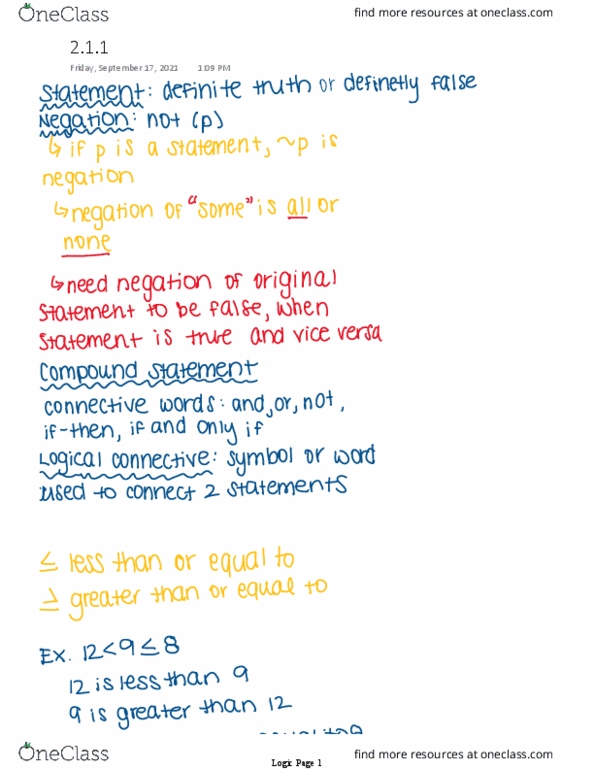 OneClass
find more resources at oneclass.com
2.1.1
Friday, September 17, 2021 1:09 PM
Statement: definite truth or definetly false
Negation: not (p)
↳ if p is a statement, ~p is
negation
↳ negation of "some" is all or
none
↳ need negation of original
statement to be false, when
statement is true and vice versa
Compound statement
connective words: and, or, not,
if-then, if and only if
Logical connective: symbol or word
used to connect 2 statements
≤ less than or equal to
≥ greater than or equal to
Ex. 12<9≤8
12 is less than 9
9 is greater than 12
OneClass
find more resources at oneclass.com
Logic Page 1